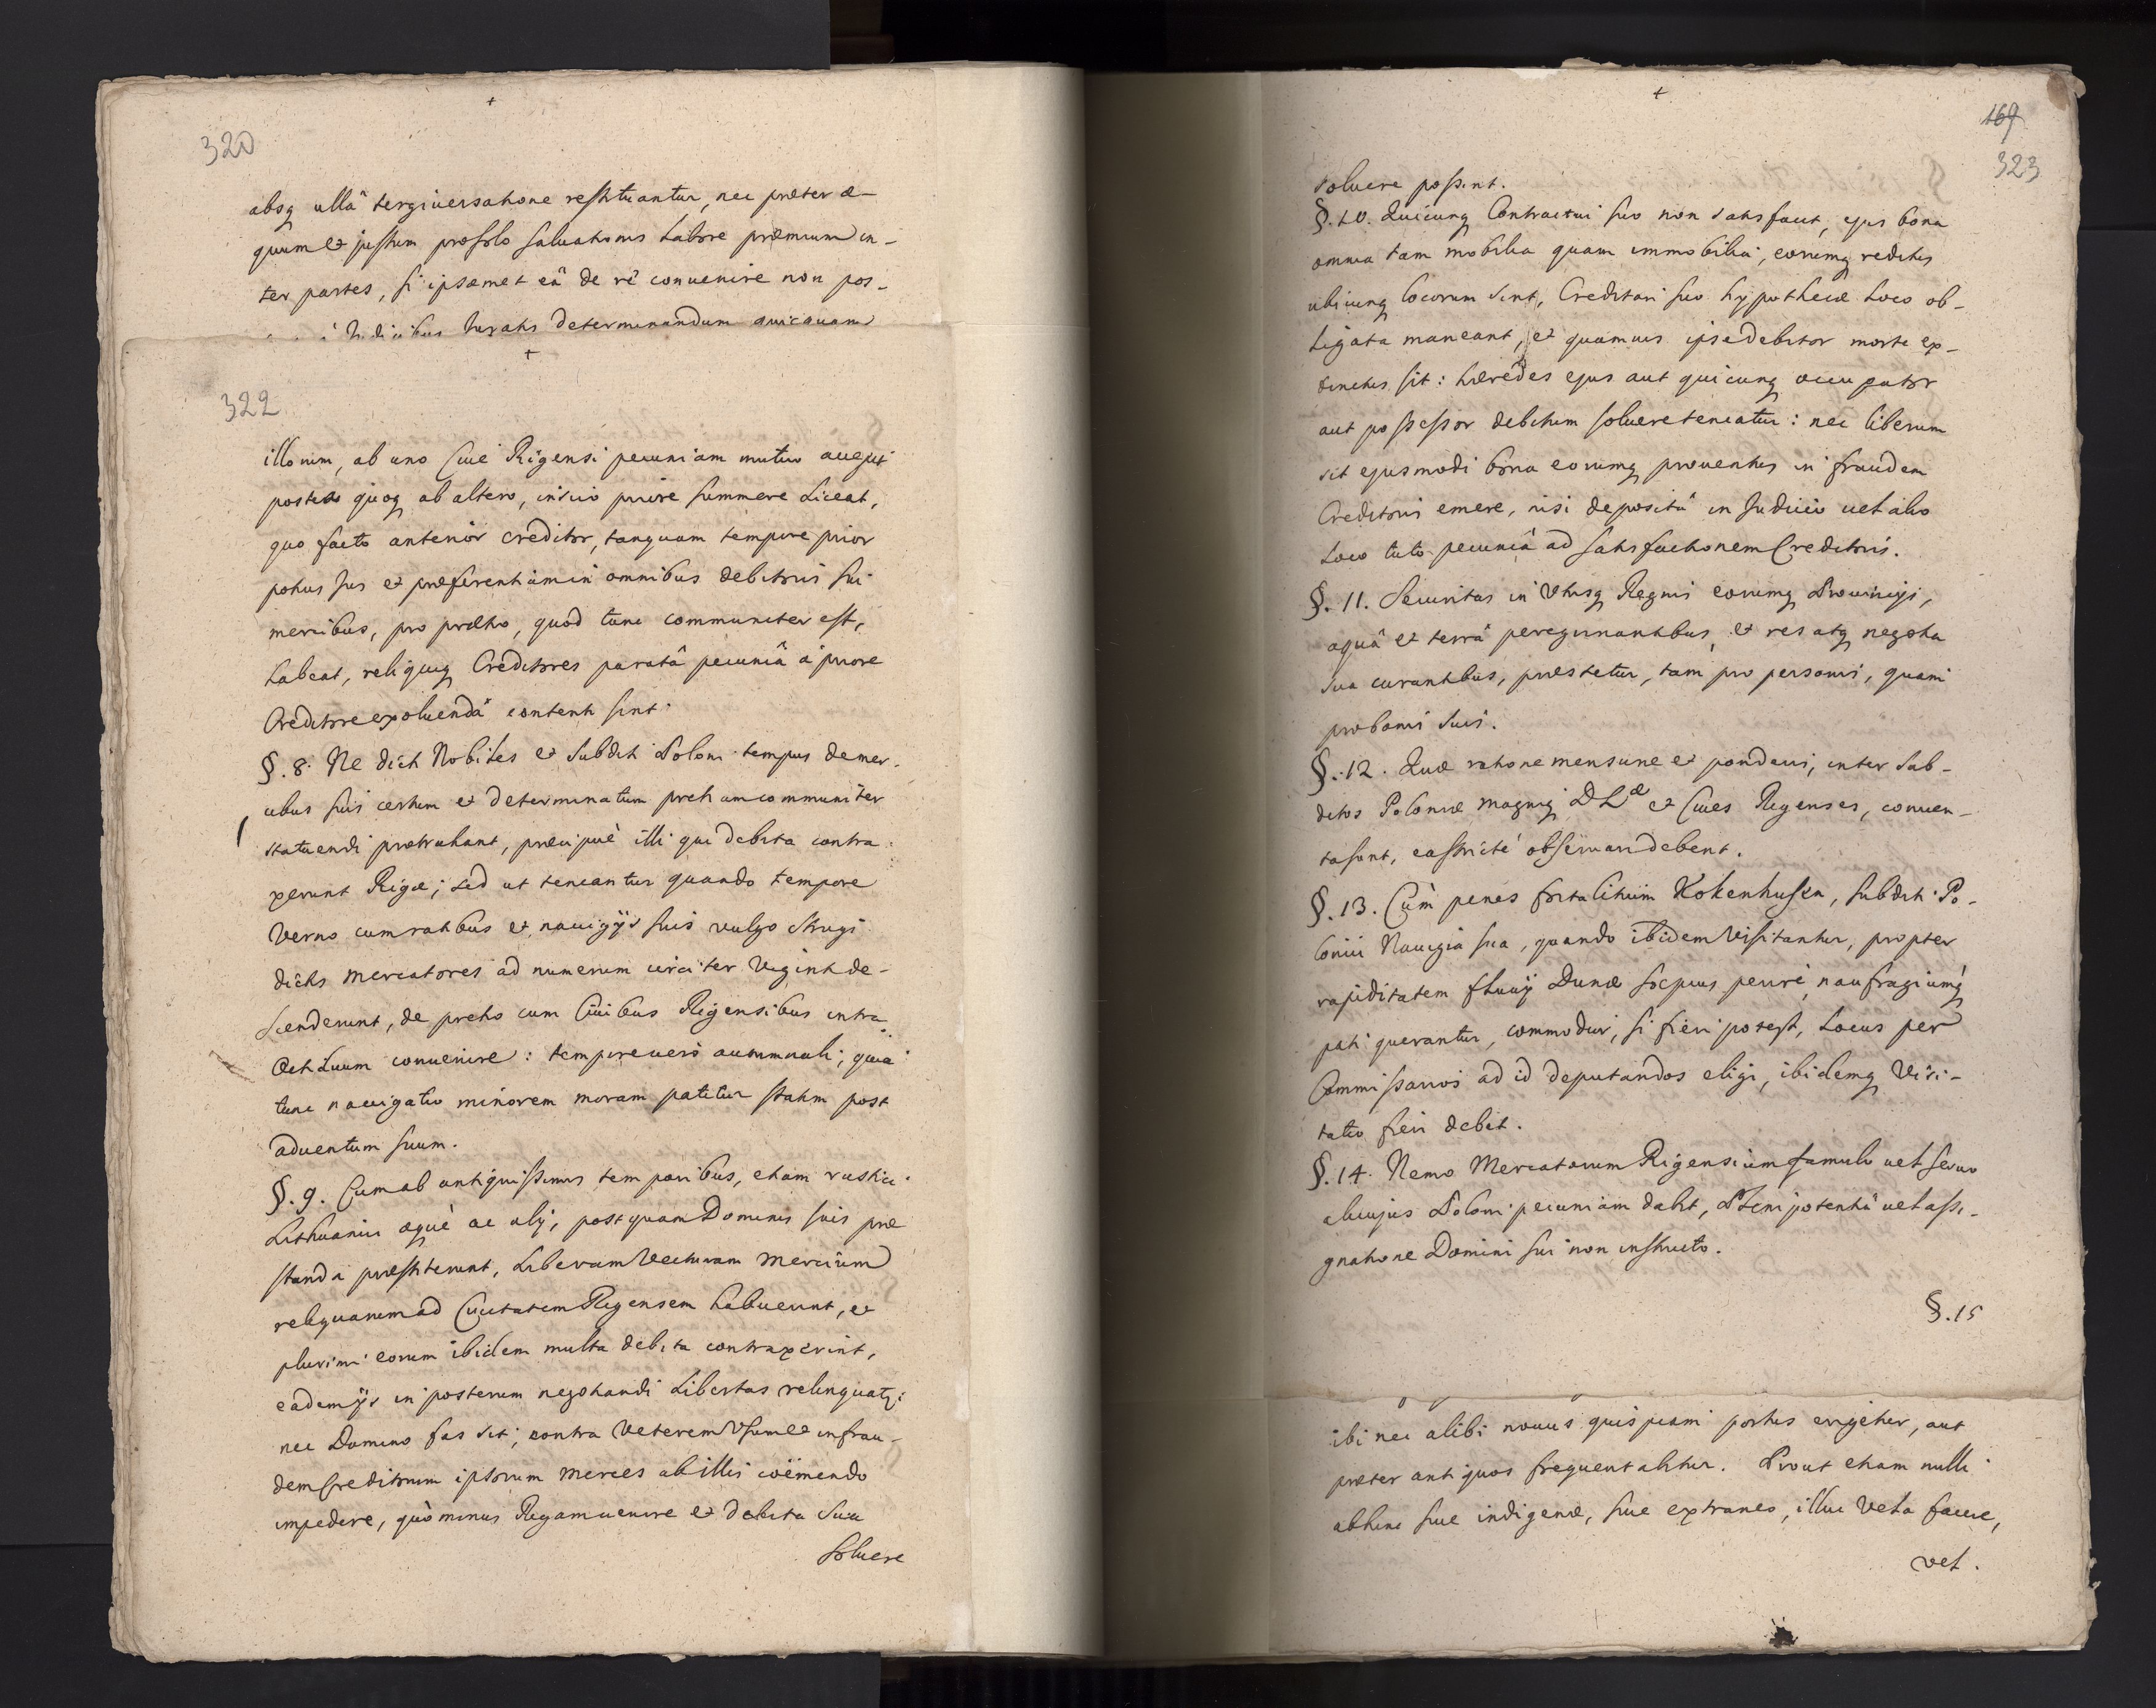 320
absq ullâ tergiuersatione restituantur, nec præter æ-
quum et justum pro solo saluationis labore præmium in-
ter partes, si ipsæmet eâ de rê conuenire non pos-
à Judicibus Juratis determinandum quicquam
322
illorum, ab uno Ciue Rigensi pecuniam mutuo accepit
postea quoq ab altero, inscio priore summere liceat,
quo facto anterior creditor, tanquam tempore prior
potius Jus et præferentiam in omnibus debitoris sui
mercibus, pro prætio, quod tunc communiter est,
habeat, reliquiq Creditores paratâ pecuniâ â priore
Creditore exoluendâ contenti sint.
§. 8. Ne dicti Nobiles et Subditi Poloni tempus de mer-
cibus suis certum et determinatum preti um communiter
statuendi protrahant, præcipuè illi qui debita contra
xerunt Rigæ; sed ut teneantur quando tempore
Verno cum ratibus et nauigijs suis vulgo strugi
dictis mercatores ad numerum circiter viginti de-
scenderunt, de pretio cum Ciuibus Rigensibus intra
Octiduum conuenire: tempore vero autumnali, quia
tunc nauigatio minorem moram patitur statim post
aduentum suum.
§. 9. Cum ab antiquissimis temporibus, etiam rustici
Lithuanici æquè ac alij, postquam Dominis suis præ
standa præstiterunt, Liberam Vecturam Mercium
reliquarum ad Ciuitatem Rigensem habuerunt, et
plurimi eorum ibidem multa debita contraxerint,
eadem ijs in posterum negotiandi Libertas relinquatq;
nec Domino fas sit, contra Veterem Usum et in frau-
dem Creditorum ipsorum merces ab illis coëmendo
impedire, quò minus Rigam uenire et debita sua
soluere
169
323
soluere possint.
§. 10. Quicunq Contractui suo non satisfacit, ejus bona
omnia tam mobilia quam immobilia, eorumq reditus
ubicunq locorum sint, Creditori suo hypothecæ loco ob-
ligata maneant, et quamuis ipse debitor morte ex-
tinctus sit: hæredes ejus aut quicunq occupator
aut possessor debitum soluere teneatur: nec liberum
sit ejusmodi bona eorumq prouentus in fraudem
Creditoris emere, nisi depositâ in Judicio uel alio
loco tuto pecuniâ ad satisfactionem Creditoris.
§. 11. Securitas in Utrisq Regnis eorumq Prouincijs,
aquâ et terrâ peregrinantibus, et res atq negotia
sua curantibus, præstetur, tam pro personis, quam
pro bonis suis.
§. 12. Quæ ratione mensuræ et ponderis, inter Sub-
ditos Poloniæ magniq D L æ et Ciues Rigenses, conuen-
ta sunt, ea strictè obseruari debent.
§. 13. Cùm penes fortalitium Kokenhusen, subditi Po-
lonici Nauigia sua, quando ibidem visitantur, propter
rapiditatem fluuij Dunæ sæpius perire, naufragiumq
pati querantur, commodior, si fieri potest, Locus per
Commissarios ad id deputandos eligi, ibidemq Visi-
tatio fieri debet.
§. 14. Nemo Mercatorum Rigensium famulo uel seruo
alicujus Poloni pecuniam dabit, Plenipotentiâ uel assi-
gnatione Domini sui non instructo.
§. 15
ibi nec alibi nouus quispiam portus erigetur, aut
præter antiquos frequentabitur. Prout etiam nulli
abhinc siue indigenæ, siue extraneo, illuc Vela facere,
vel.